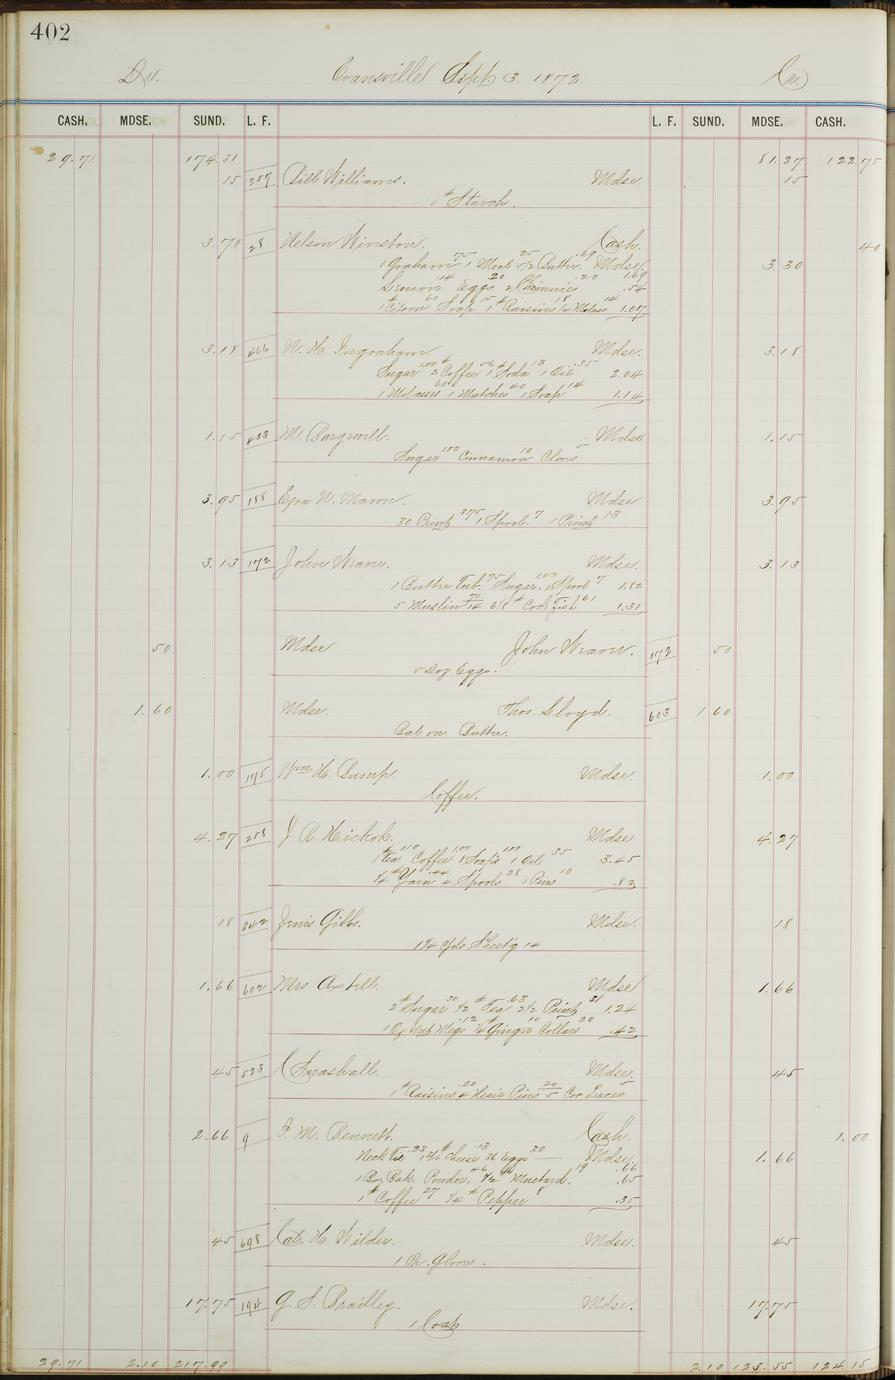 402
Dr. Evansville Sept 3. 1873. Cr.
CASH. MDSE. SUND. L. F. L. F. SUND. MDSE. CASH.
29.71 174.31 81.27 122.75
15 257 Bill Williams. Mdse. 15
1# Starch.
3.70 28 Nelson Winston. Cash. 40
1 Graham 75 1 Meal 25 5/2 Butter .69 Mdse. 1.69 3.30
Lemon .14 Eggs 20 2 Chimnies .20 .54
1# Citron 60 Soap 15 1# Raisins 18 1/4 Molass 14 1.07
3.18 466 W. H. Ingraham Mdse. 3.18
Sugar 1.00 2# Coffee 56 1# Soda 13 1 Oil .35 2.04
1 Molasses 60 1 Matches 40 1 Soap 14 1.14
1.15 433 Mdse 1.15
Sugar 1.00 Cinnamon 10 Cloves 5
3.95 188 Ezra W. Mann. Mdse 3.95
30 Print 3.75 1 Spool 7 1 Print 13
3.13 172 John Weaver. Mdse. 3.13
1 Butter Tub. 75 Sugar. 1.00 1 Spool 7 1.82
5 Muslin 70/14 6 1/8 # Cod fish 61 1.31
50 Mdse John Weaver. 172 50
5 Doz Eggs.
1.60 Mdse. Thos. Lloyd. 603 1 60
Bal on Butter.
1.00 175 Wm H. Bump. Mdse. 1.00
Coffee.
4.27 258 J. R. Hickok. Mdse 4.27
1# Tea 1.10 Coffee 1.00 8 Soaps 1.00 1 Oil 35 3.45
1/4 # Yarn .44 4 Spools 28 1 Pins 10 .82
18 342 Jenis Gibbs. Mdse. 18
1 1/4 Yds Sheet'g 14
1.66 602 Mrs Axtell. Mdse 1.66
2# Sugar 30 1/2 # Tea .63 2 1/2 Print 31 1.24
1 Oz Nut Megs .12 1/4 # Ginger 10 Collars 20 .42
45 523 C Smashall. Mdse. 45
1# Raisins .20 4 Hair Pins 20/5 Cor Laces 5
2.66 9 F. M. Bennett. Cash. 1.00
Neck Tie .23 1 3/16 # Cheese .13 36 Eggs 30 Mdse. .66 1.66
1 Bx Bak. Powder. 46 1/2 # Mustard. 19 .65
1# Coffee 27 1/4 # Pepper 8 .35
45 698 Cal. H. Wilder. Mdse. 45
1 Pr. Gloves.
17.75 194 G. S. Bradley. Mdse. 17.75
1 Coat
29.71 2.10 217.99 2.10 123.55 124.15